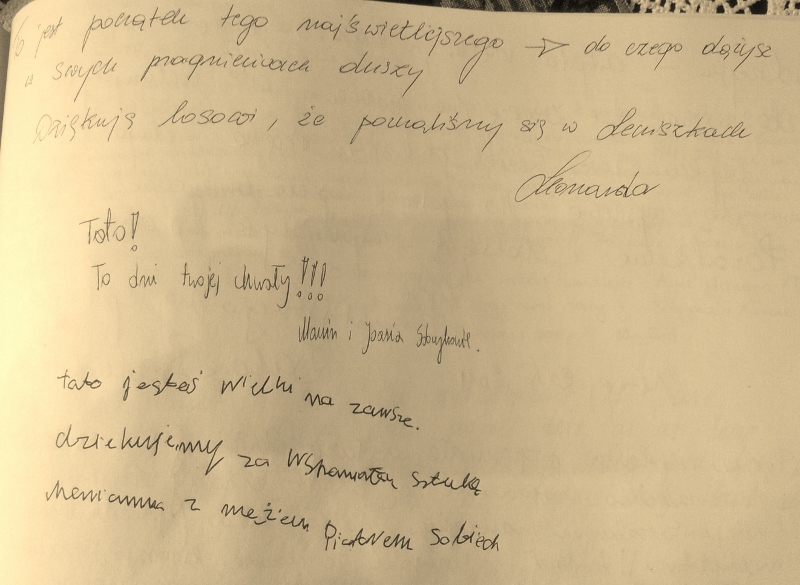 jest początek tego najświetliejszego → do czego dążysz
w swych pragnieniach duszy
Dziękuję losowi, że poznaliśmy się w
Leonarda
Tato!
To dni twojej chwały!!!
Marcin i Joasia
tato jesteś wielki na zawsze.
dziekujemy za wspaniałą sztukę
Marianna z mężem Piotrem Sobiech